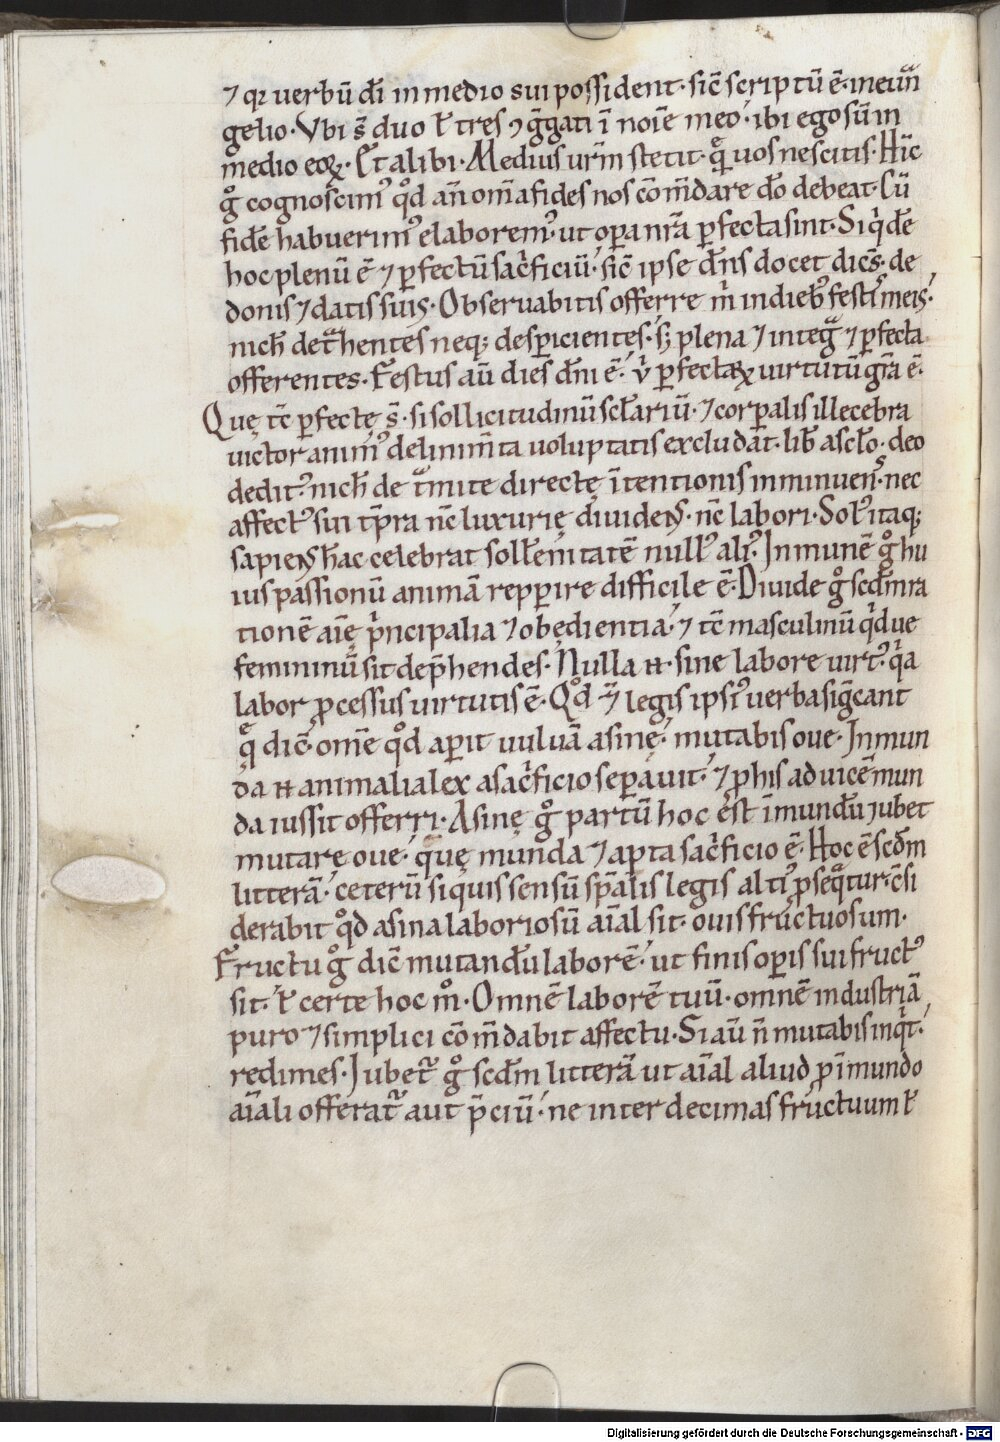 ⁊ qꝛ uerbū dī in medio sui possident· sic̄ scriptū ē· in euan
gelio· Vbi s̄ duo ł tres ↄgͣgati ī noīe meo· ibi ego sū in
medio eoꝝ· Et alibi· Medius ur̄m stetit· qͣ uos nescitis· Hīc
gͦ cognoscimꝰ qͦd an̄ om̄a fides nos cōm̄dare do̅ debeat· Cū
fidē habuerimꝰ elaboremꝰ· ut oꝑa nr̄a ꝑfecta sint· Siqͥdē
hoc plenū ē ⁊ ꝑfectū sacͥficiū· sic̄ ipse dn̄s docet dice̅s· de
donis ⁊ datis suis· Obseruabitis offerre m̄ in diebꝰ festis meis·
nich̄ detͣhentes neq; desꝑicientes· s; plena ⁊ integͣ ⁊ ꝑfecta
offerentes· Festus aū dies dn̄i ē· u̇ ꝑfectaꝝ uirtutū gr̄a ē·
Quę tc̄ ꝑfectę s̄· si sollicitudinū scłariū· ⁊ corꝑalis illecebra
uictor animꝰ delinim̄ta uoluptatis excludat· lib̄ ascło· deo
deditꝰ· nich̄ de tͣmite directę ītentionis inminuens· nec
affectꝰ sui tp̄ra nc̄ luxurię diuidens· nc̄ labori· Solꝰ itaq;
sapiens hac celebrat sollēnitatē nullꝰ aliꝰ· Inmunē gͦ hu
ius passionū animā repꝑire difficile ē· Diuide gͦ scd̄m ra
tionē aīę pͥncipalia ⁊ obędientia· ⁊ tc̄ masculinū qͥd ue
femininū sit dep̄hendes· Nulla n̄· sine labore uirtꝰ· qͥa
labor ꝓcessus uirtutis ē· Qͦd ⁊ legis ipsiꝰ uerba sig̅cant
qͣ dic̄· om̄e qͦd aꝑit uuluā asinę· mutabis oue· Inmun
da n̄ animalia lex a sacͥficio seꝑauit· ⁊ ꝓ his ad uicē mun
da iussit offerri· Asinę gͦ partū hoc est īmundū iubet
mutare oue· quę munda ⁊ apta sacͥficio ē· Hoc ē scd̄m
litterā· ceterū si quis sensū sp̄alis legis altiꝰ ꝓseqͥtur· c̄si
derabit qͦd asina laboriosū aīal sit· ouis fructuosum·
Fructu gͦ dic̄ mutandū laborē· ut finis oꝑis sui fructꝰ
sit· ł certe hoc mͦ· Omnē laborē tuū· omnē industriā
puro ⁊ simplici cōm̄dabit affectu· Si aū n̄ mutabis inqͥt·
redimes· Iubetᷣ gͦ scd̄m litterā ut aīal aliud ꝓ īmundo
aīali offeratᷣ aut p̄ciū· ne inter decimas fructuum ł
Digitalisierung gefördert durch die Deutsche Forschungsgemeinschaft - DFG